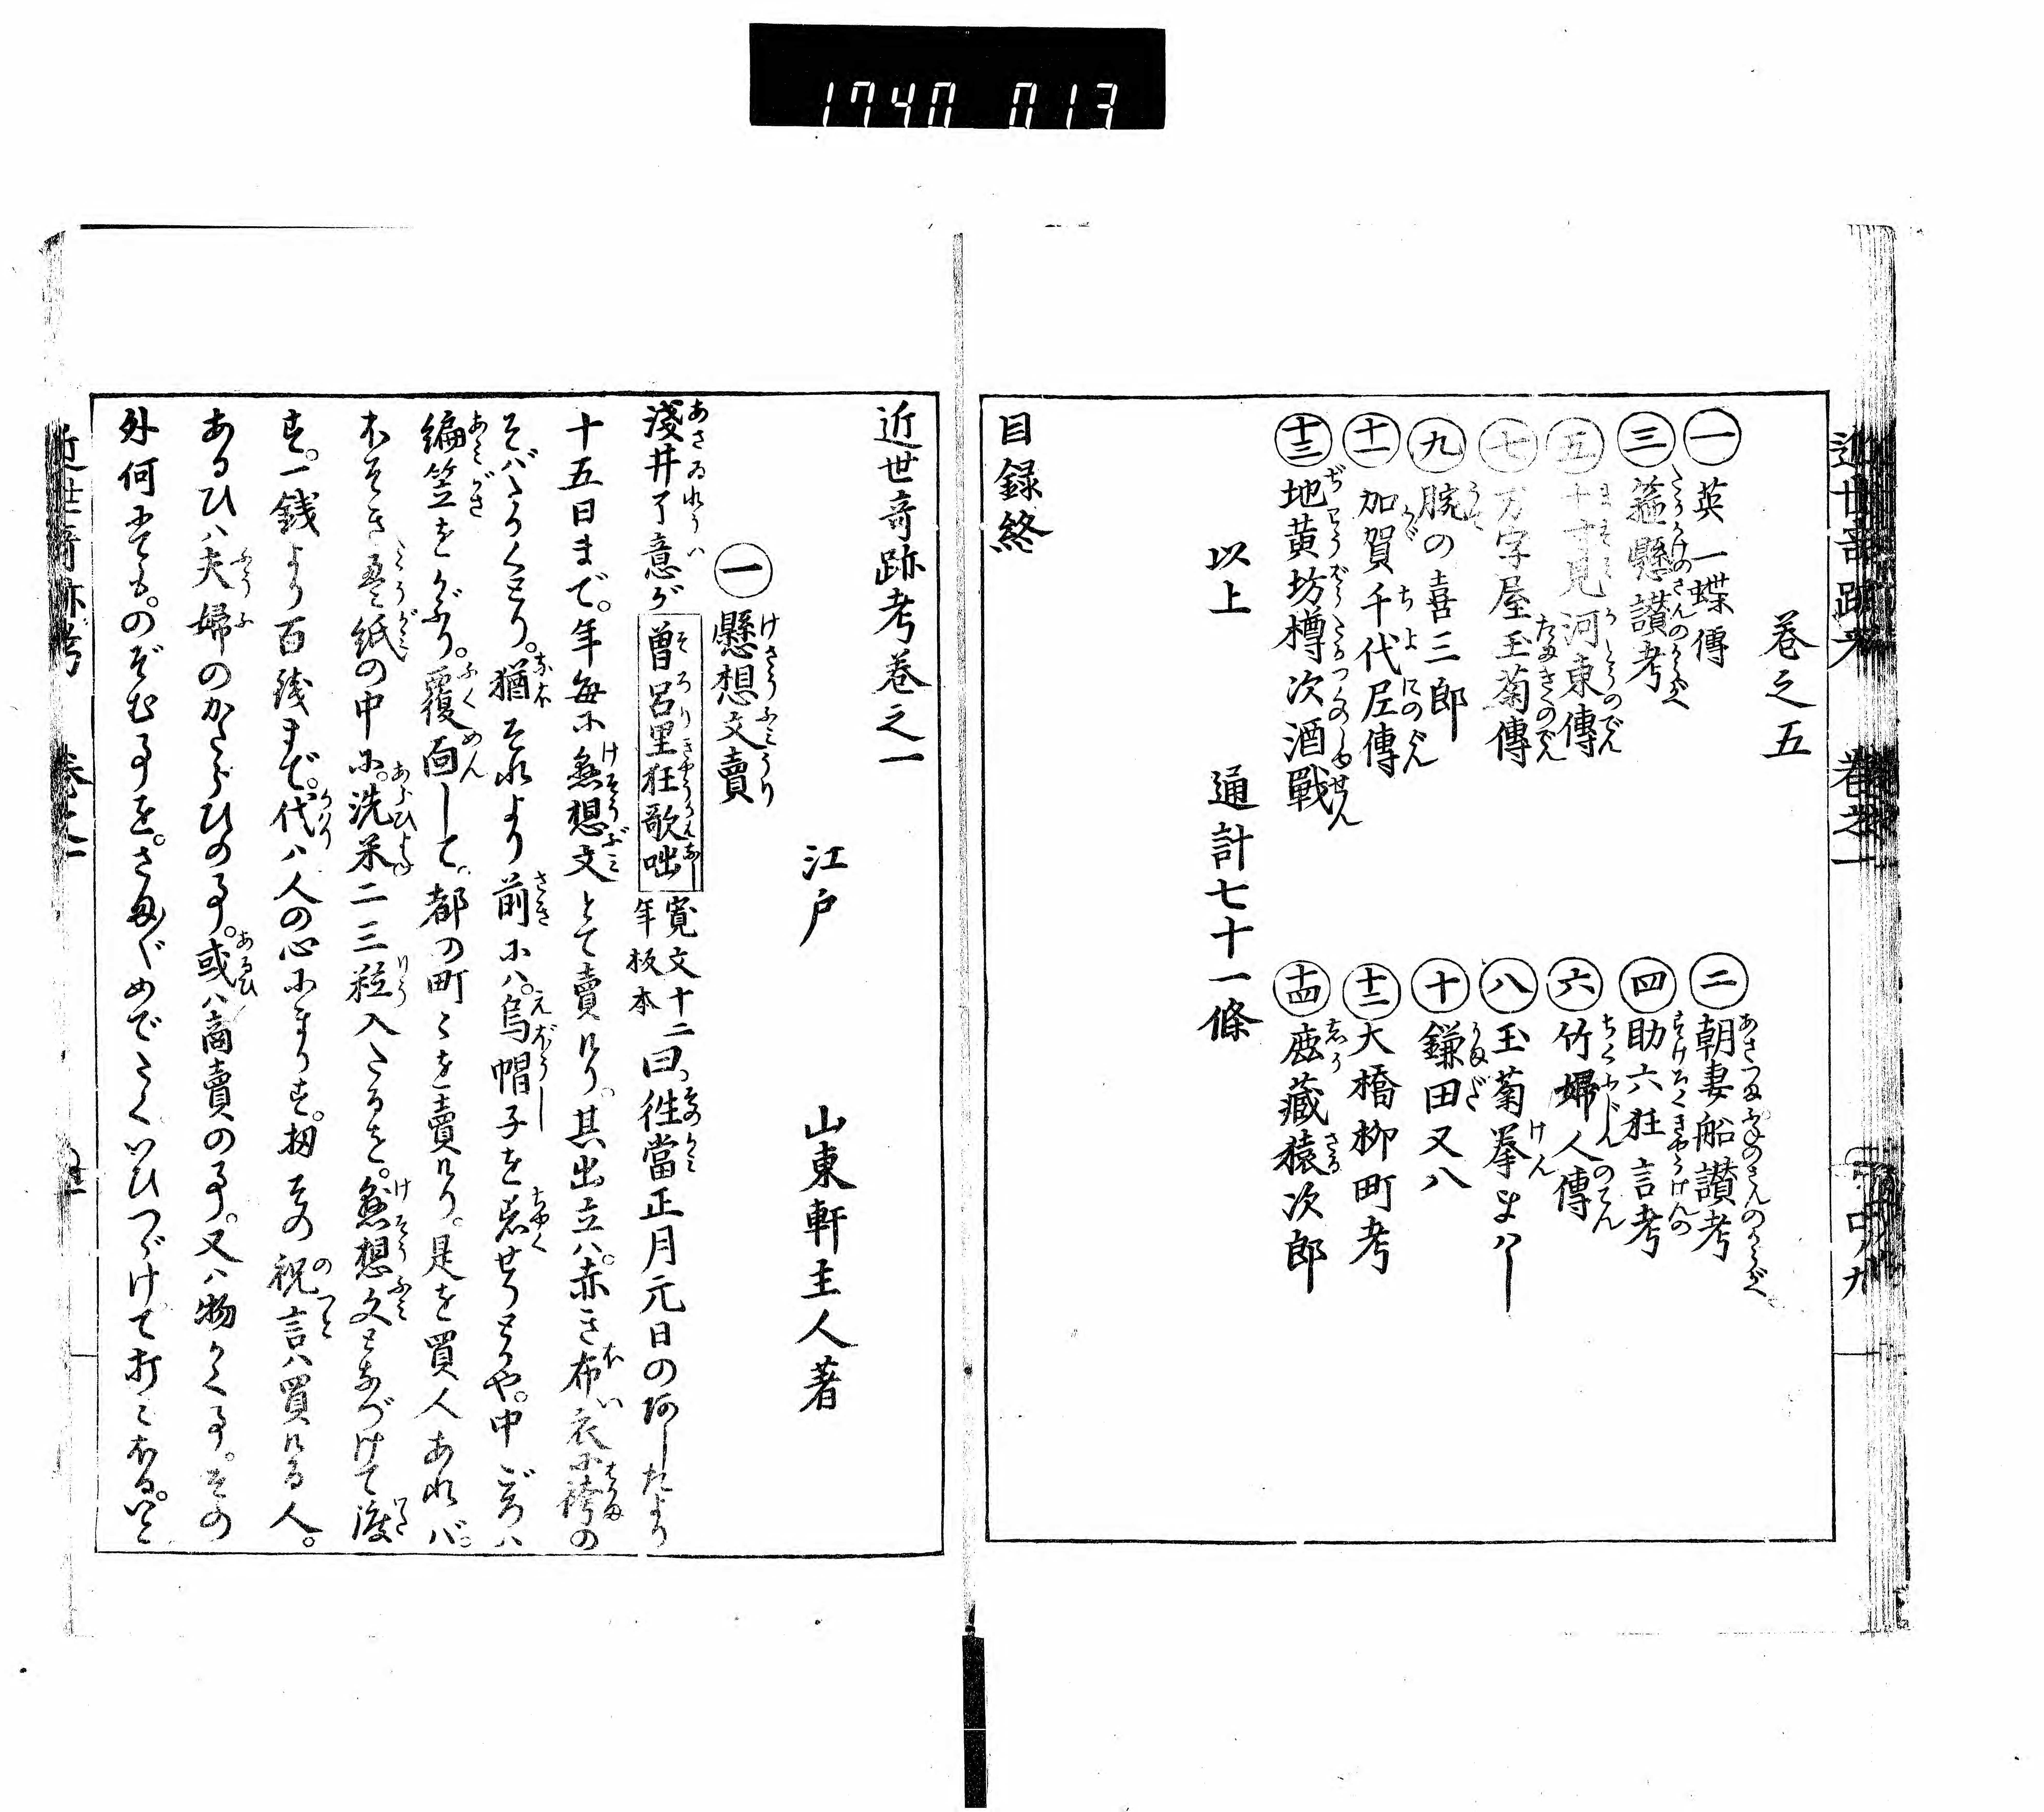 1740 013
巻之五
㊀英一蝶傳
㊁朝妻船讃考
㊂箍懸讃考
㊃助六狂言考
㊄十寸見河東傳
㊅竹婦人傳
㊆万字屋玉菊傳
㊇玉菊拳まはし
㊈腕の喜三郎
㊉鎌田又八
⑪加賀千代尼傳
⑫大橋柳町考
⑬地黄坊樽次酒戰
⑭鹿藏猿次郎
以上　通計七十一條
目録終
近世奇跡考巻之一
江戸　山東軒主人著
㊀懸想文賣
淺井了意が曽呂里狂歌咄寛文十二年板本曰。徃當正月元日の あしたより
十五日まで。年毎に懸想文とて賣けり。其出立ハ。赤き布衣に袴の
そばたかくとり。猶それより前にハ。烏帽子を着せりとかや。中ごろハ
編笠をかぶり。覆面して。都の町〻を賣けり。是を買人あれバ。
ほそき疊紙の中に。洗米二三粒入たるを。懸想文となづけて渡
す。一銭より百銭まで。代ハ人の心にまかす。扨その祝言ハ買ける人。
あるひハ夫婦のかたらひの事。或ハ商賣の事。又ハ物かく事。その
外何にても。のぞむ事を。さまぐめでたくいひつゞけて打こおる。いと
近世奇跡考　巻之一